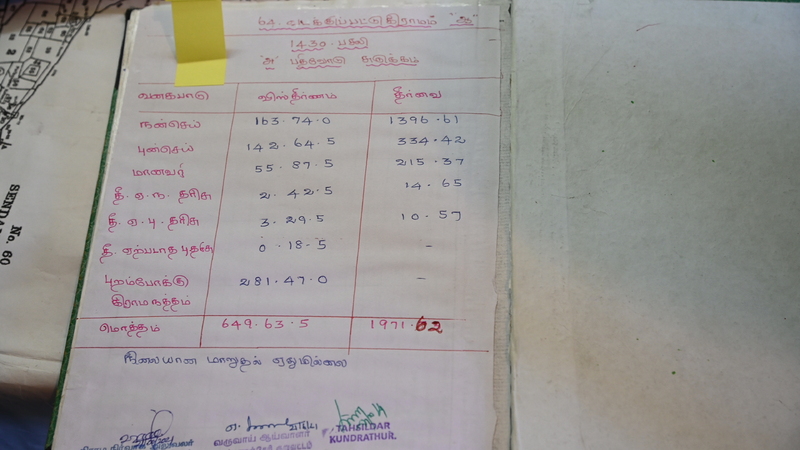 1430 பசலி
"அ" பதிவேடு சுருக்கம்
வகைபாடு விஸ்தீர்ணம் தீர்வை
நன்செய் 163.74.0 1396.61
புன்செய் 142.64.5 334.42
மானவர் 55.87.5 215.37
தீ.ஏ.ந. தரிசு 2.42.5 14.65
தீ.ஏ.பு. தரிசு 3.29.5 10.57
தீ. ஏற்படாத 0.18-5 -
புறம்போக்கு 281.47.0 -
கிராமநத்தம்
மொத்தம் 649.63.5 1971.62
நிலையான மாறுதல் ஏதுமில்லை
வருவாய் ஆய்வாளர்
TAHSILDAR
KUNDRATHUR.
No. 60